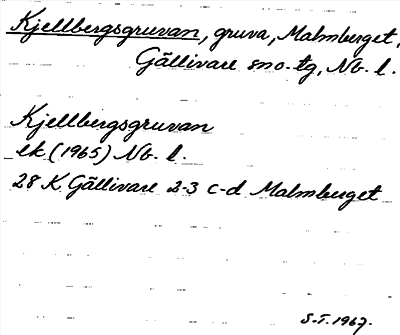 Kjellbergsgruvan, gruva, Malmberget,
Gällivare sno.tg, Nb. l.
Kjellbergsgruvan
ek (1965) Nb. l.
28 K Gällivare 2-3 c-d Malmberget
S-I. 1967.